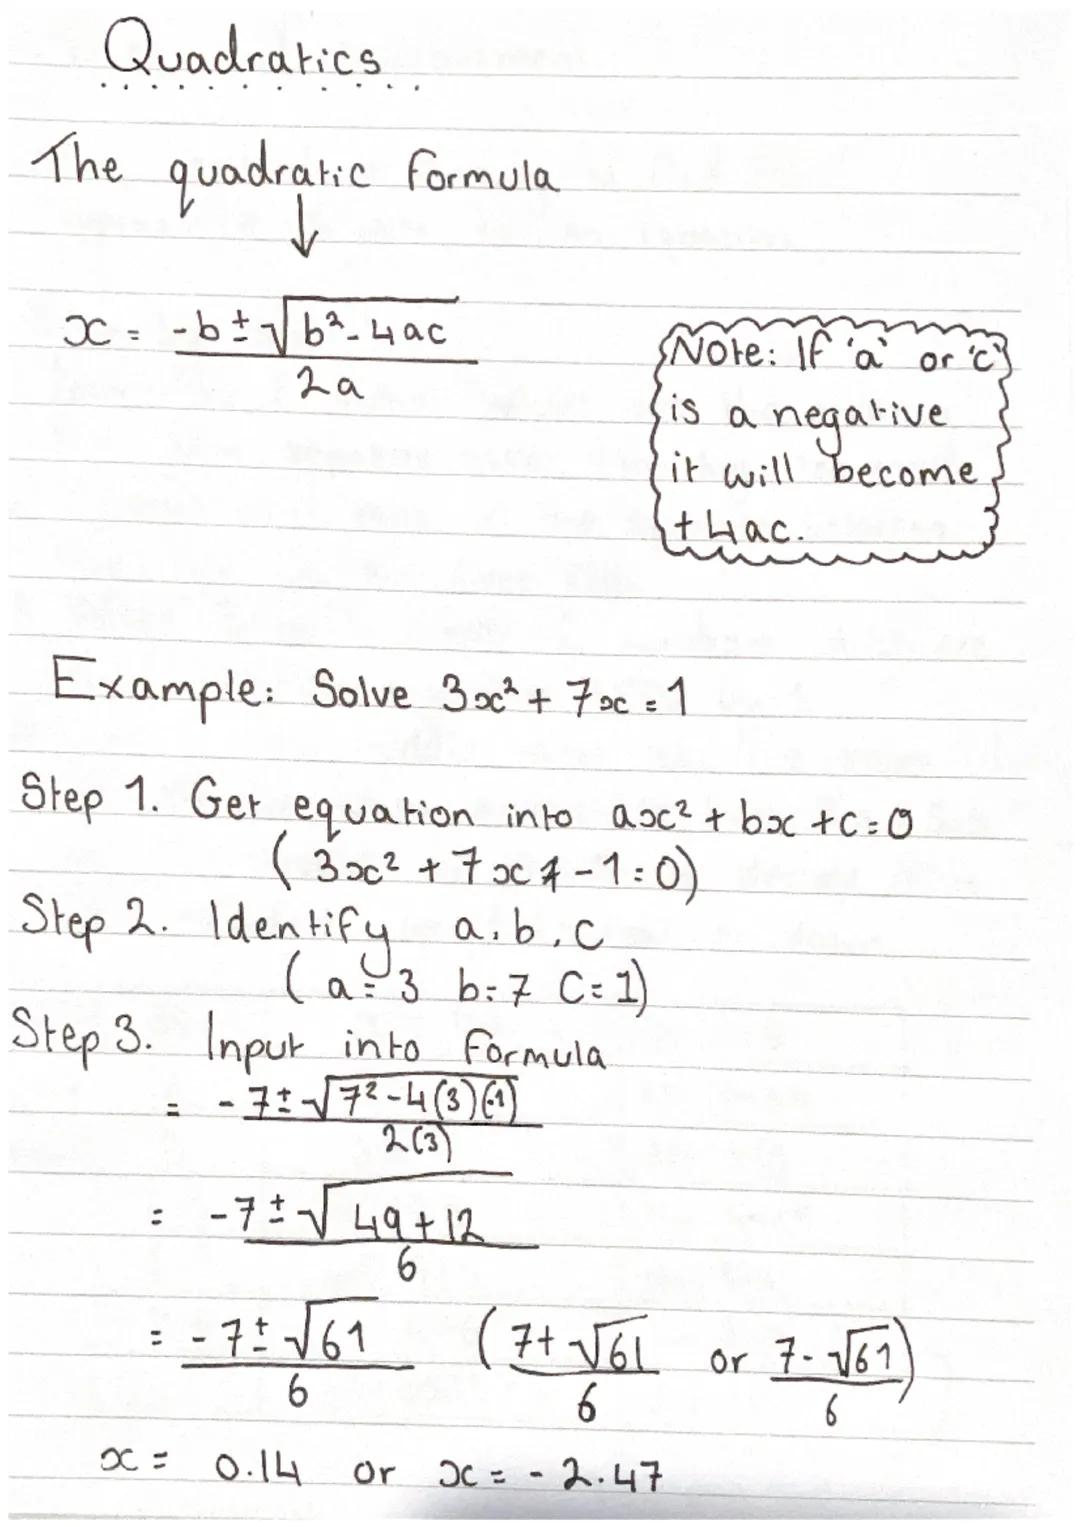 Quadratics
The quadratic formula
↓
x = -b ± √b² - 4ac
2a
Note: If 'a' or 'c'
is a negative
it will become
+4ac.
Example: Solve 3x² + 7x = 1
Step 1. Get equation into ax² + bx + c = 0
(3x² + 7x - 1 = 0)
Step 2. Identify a, b, c
(a = 3 b = 7 c = 1)
Step 3. Input into formula
= -7 ± √7² - 4(3)(-1)
2(3)
= -7 ± √49 + 12
6
= -7 ± √61 (7 + √61 or 7 - √61)
6 6 6
x = 0.14 or x = -2.47